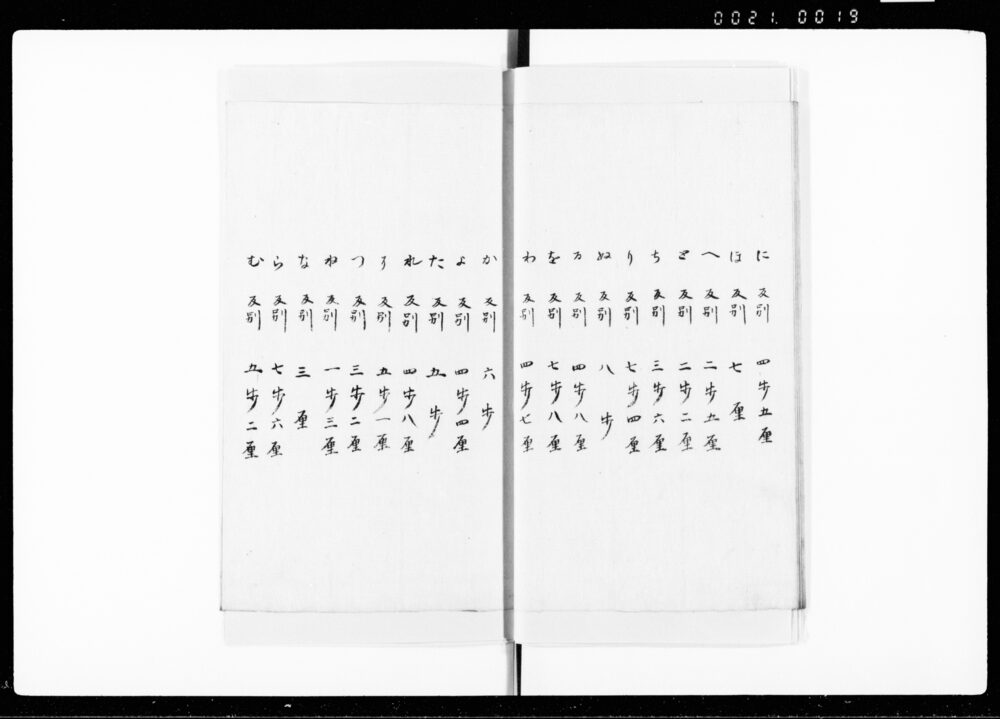 0021.0019
に 反別 四歩五厘
ほ 反別 七厘
へ 反別 二歩五厘
と 反別 二歩二厘
ち 反別 三歩六厘
り 反別 七歩四厘
ぬ 反別 八歩
る 反別 四歩八厘
を 反別 七歩八厘
わ 反別 四歩七厘
か 反別 六歩
よ 反別 四歩四厘
た 反別 五歩
れ 反別 四歩八厘
そ 反別 五歩一厘
つ 反別 三歩二厘
ね 反別 一歩三厘
な 反別 三厘
ら 反別 七歩六厘
む 反別 五歩二厘